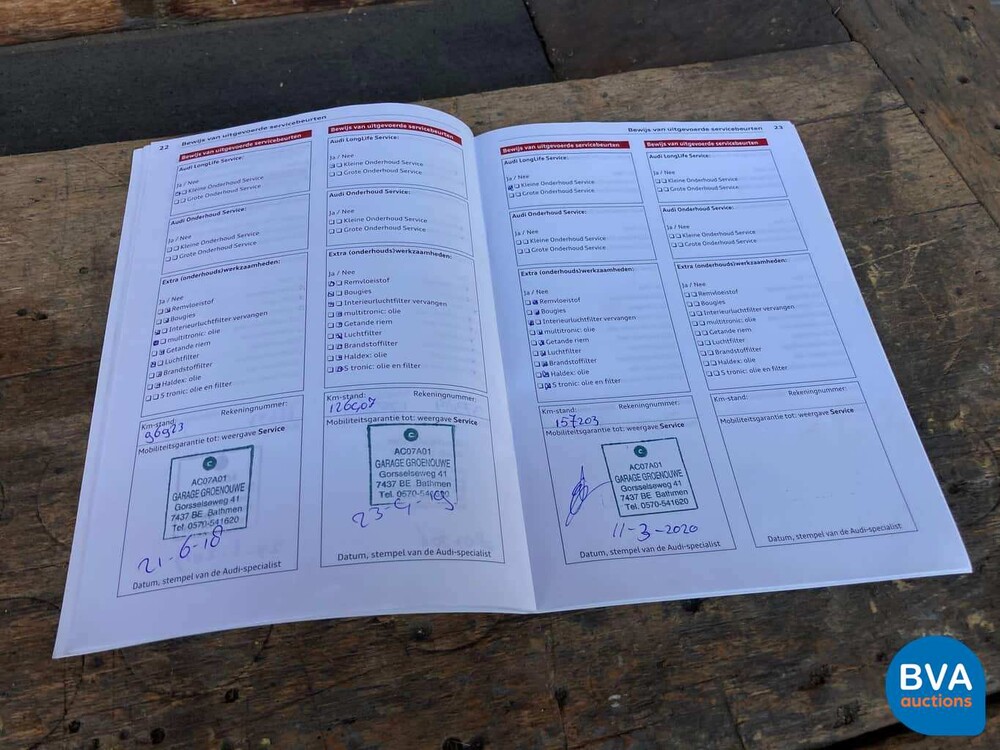 22 Bewijs van uitgevoerde servicebeurten
Bewijs van uitgevoerde servicebeurten
Audi LongLife Service:
Ja / Nee
Kleine Onderhoud Service
Grote Onderhoud Service
Audi Onderhoud Service:
Ja / Nee
Kleine Onderhoud Service
Grote Onderhoud Service
Extra (onderhouds)werkzaamheden:
Ja / Nee
Remvloeistof
Bougies
Interieurluchtfilter vervangen
multitronic: olie
Getande riem
Luchtfilter
Brandstoffilter
Haldex: olie
S tronic: olie en filter
Km-stand: Rekeningnummer:
96923
Mobiliteitsgarantie tot: weergave Service
AC07A01
GARAGE GROENOUWE
Gorsselseweg 41
7437 BE Bathmen
Tel. 0570-541620
21-6-18
Datum, stempel van de Audi-specialist
Bewijs van uitgevoerde servicebeurten
Audi LongLife Service:
Ja / Nee
Kleine Onderhoud Service
Grote Onderhoud Service
Audi Onderhoud Service:
Ja / Nee
Kleine Onderhoud Service
Grote Onderhoud Service
Extra (onderhouds)werkzaamheden:
Ja / Nee
Remvloeistof
Bougies
Interieurluchtfilter vervangen
multitronic: olie
Getande riem
Luchtfilter
Brandstoffilter
Haldex: olie
S tronic: olie en filter
Km-stand: Rekeningnummer:
126907
Mobiliteitsgarantie tot: weergave Service
AC07A01
GARAGE GROENOUWE
Gorsselseweg 41
7437 BE Bathmen
Tel. 0570-541620
Datum, stempel van de Audi-specialist
Bewijs van uitgevoerde servicebeurten 23
Bewijs van uitgevoerde servicebeurten
Audi LongLife Service:
Ja / Nee
Kleine Onderhoud Service
Grote Onderhoud Service
Audi Onderhoud Service:
Ja / Nee
Kleine Onderhoud Service
Grote Onderhoud Service
Extra (onderhouds)werkzaamheden:
Ja / Nee
Remvloeistof
Bougies
Interieurluchtfilter vervangen
multitronic: olie
Getande riem
Luchtfilter
Brandstoffilter
Haldex: olie
S tronic: olie en filter
Km-stand: Rekeningnummer:
157203
Mobiliteitsgarantie tot: weergave Service
AC07A01
GARAGE GROENOUWE
Gorsselseweg 41
7437 BE Bathmen
Tel. 0570-541620
11-3-2020
Datum, stempel van de Audi-specialist
Bewijs van uitgevoerde servicebeurten
Audi LongLife Service:
Ja / Nee
Kleine Onderhoud Service
Grote Onderhoud Service
Audi Onderhoud Service:
Ja / Nee
Kleine Onderhoud Service
Grote Onderhoud Service
Extra (onderhouds)werkzaamheden:
Ja / Nee
Remvloeistof
Bougies
Interieurluchtfilter vervangen
multitronic: olie
Getande riem
Luchtfilter
Brandstoffilter
Haldex: olie
S tronic: olie en filter
Km-stand: Rekeningnummer:
Mobiliteitsgarantie tot: weergave Service
Datum, stempel van de Audi-specialist
BVA
auctions